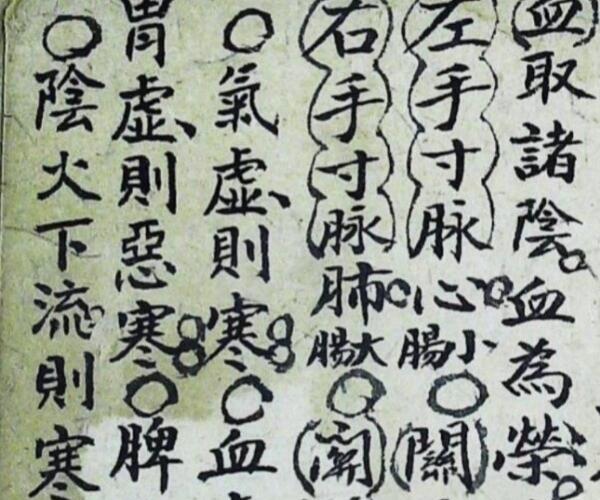 血取諸陰。血為榮。
左手寸脉心。小腸○關
右手寸脉肺。大腸○關
○氣虛、則寒○血
胃虛、則惡寒○脾
○陰火下流則寒